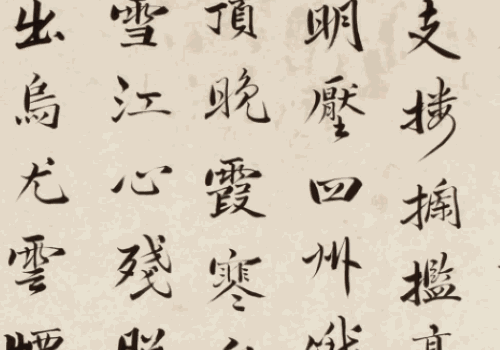 支樓欄檻
明壓四州
頂晚霞寒
雪江心殘
出烏尤雲